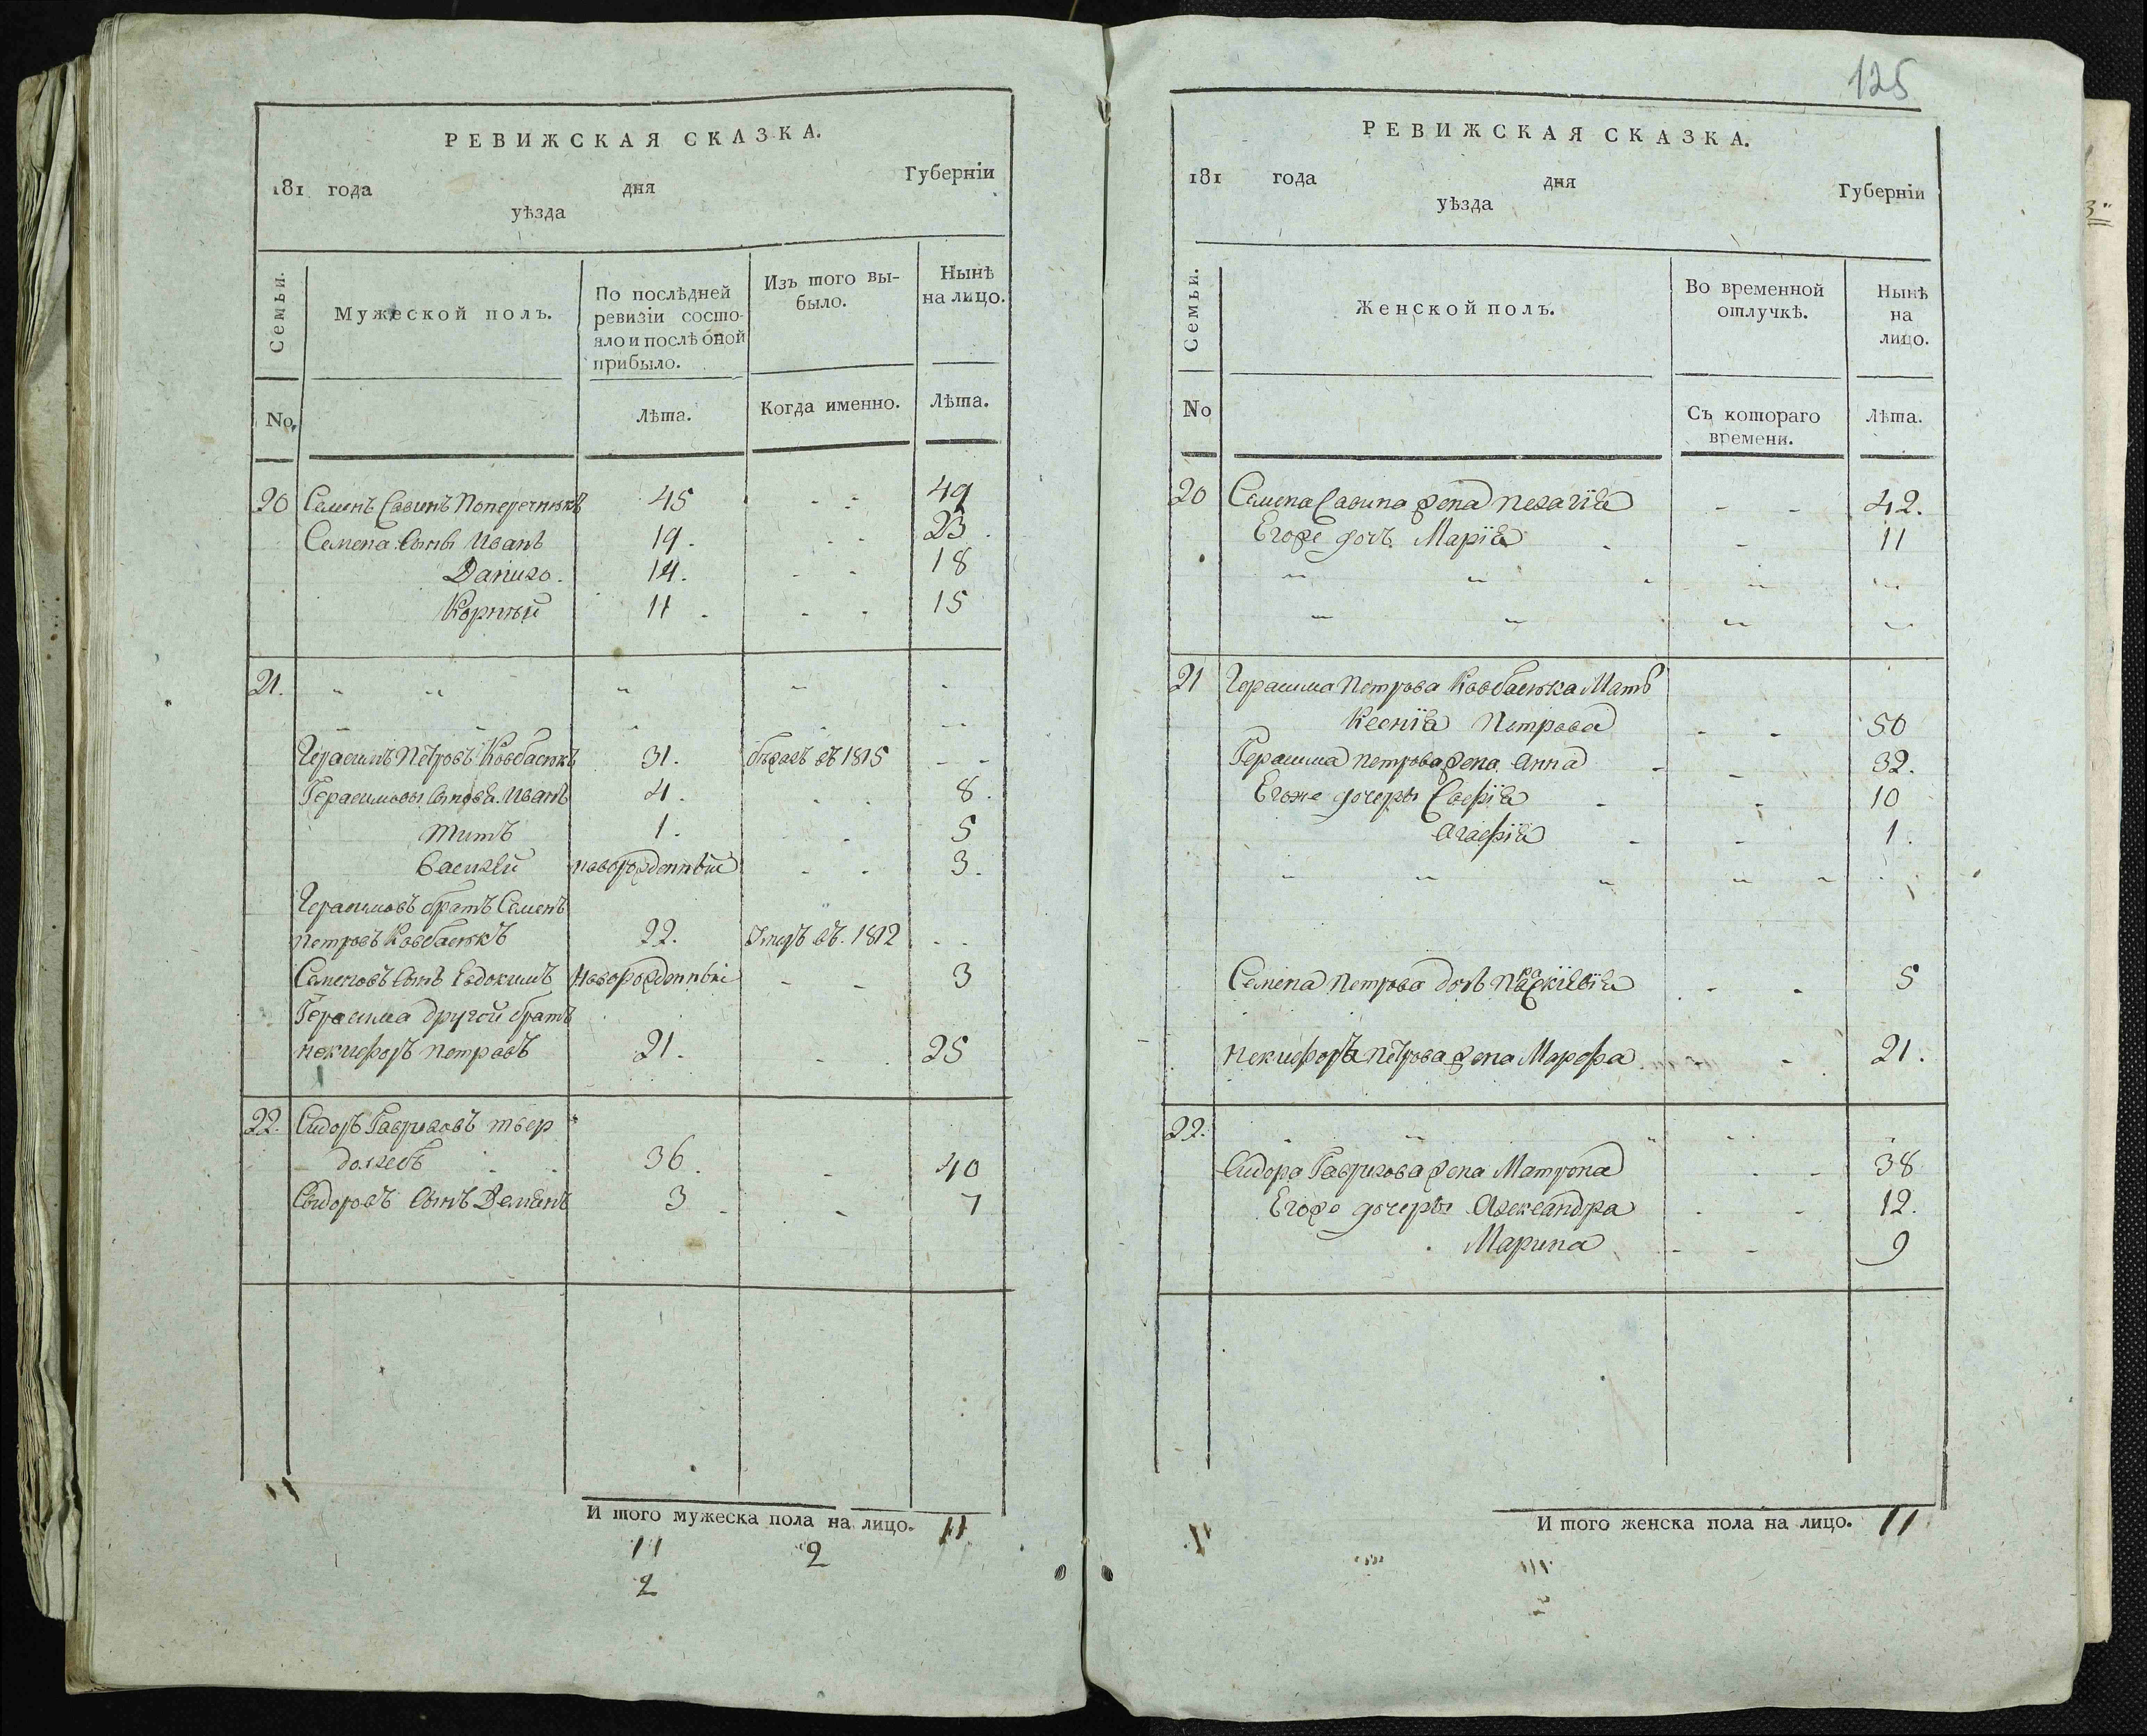 РЕВИЖСКАЯ СКАЗКА.
181 года дня Губерніи
уѣзда
Семьи. Мужеской полъ. По послѣдней ревизіи состояло и послѣ оной прибыло. Изъ того выбыло. Нынѣ на лицо.
No. Лѣта. Когда именно. Лѣта.
20 Семенъ Савинъ Поперечнюкъ 45 - - 49
Семена сынъ Иванъ 19. - - 23.
Данило. 14. - - 18
Корнѣй 11 - - - 15
21. " " " " "
Герасимъ Петровъ Ковбасюкъ 31. бѣжалъ въ 1815 - -
Герасимовы сыновья. Иванъ 4. - - 8.
Титъ 1. - 5
Василей новорожденный - - 3.
Герасимовъ братъ Семенъ
Петровъ Ковбасюкъ 22. Умеръ въ. 1812 - -
Семеновъ сынъ Евдокимъ Новорожденный - - 3
Герасима другой братъ
Некифоръ Петровъ 21. - . 25
22. Сидоръ Гавриловъ твер
дохлебъ - - 36. - 40
Сыдоровъ сынъ Демянъ 3 - - 7
И того мужеска пола на лицо. 11
11 2
2
125
РЕВИЖСКАЯ СКАЗКА.
181 года дня Губерніи
уѣзда
Семьи. Женской полъ. Во временной отлучкѣ. Нынѣ на лицо.
No Съ котораго времени. Лѣта.
20 Семена Савина жена Пелагия - - 42.
Егоже дочь. Мария - - 11
21 Герасима Петрова Ковбасюка Мать
Ксения Петрова - - 50
Герасима Петрова жена Анна - - 32.
Егоже дочеры Софія - - 10
Агафія - - 1.
Семена Петрова дочь Параскивѣя - - 5
Некифора Петрова жена Марфа - 21.
22.
Сидора Гаврилова жена Матрона - - 38
Егоже дочеры Александра - - 12.
Марина - - 9
И того женска пола на лицо. 11